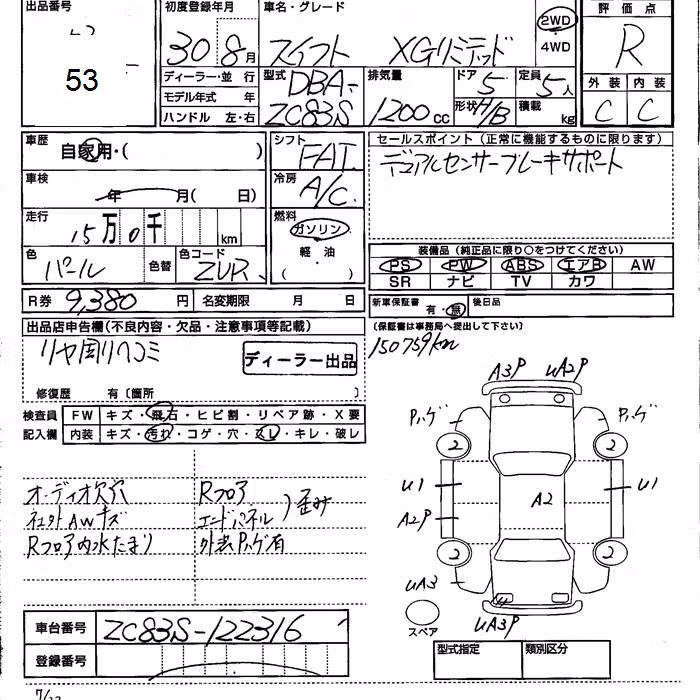 出品番号
53
初度登録年月
30 8 月
ディーラー・並 行
モデル年式 年
ハンドル 左・右
車名・グレード
スイフト XGリミテッド
2WD
・
4WD
型式
DBA-
ZC83S
排気量
1200 cc
ドア
5
形状 H/B
定員
5人
積載
kg
評価点
R
外装 内装
C C
車歴
自家用・( )
車検
年 月( 日)
走行
15万0千 km
色
パール
色替
色コード
ZVR
シフト
FAT
冷房
A/C
燃料
ガソリン
・
軽 油
( )
セールスポイント(正常に機能するものに限ります)
デュアルセンサーブレーキサポート
装備品(純正品に限り○をつけてください)
PS PW ABS エアB AW
SR ナビ TV カワ
R券 9,380 円
名変期限 月 日
新車保証書 有・無
後日品
(保証書は事務局へ提出して下さい)
150759km
出品店申告欄(不良内容・欠品・注意事項等記載)
リヤ周リヘコミ
ディーラー出品
修復歴 有〔箇所 〕
検査員
記入欄
FW キズ・飛石・ヒビ割・リペア跡・X要
内装 キズ・汚れ・コゲ・穴・スレ・キレ・破レ
オーディオ欠穴
AWキズ
Rフロア内水たまり
Rフロア
エンドパネル
歪み
外装Pハゲ有
A3P UA2P
Pハゲ Pハゲ
2 2
U1 A2 U1
A2P
2 2
UA3
UA3P
スペア
車台番号 ZC83S-122316
登録番号
型式指定 類別区分